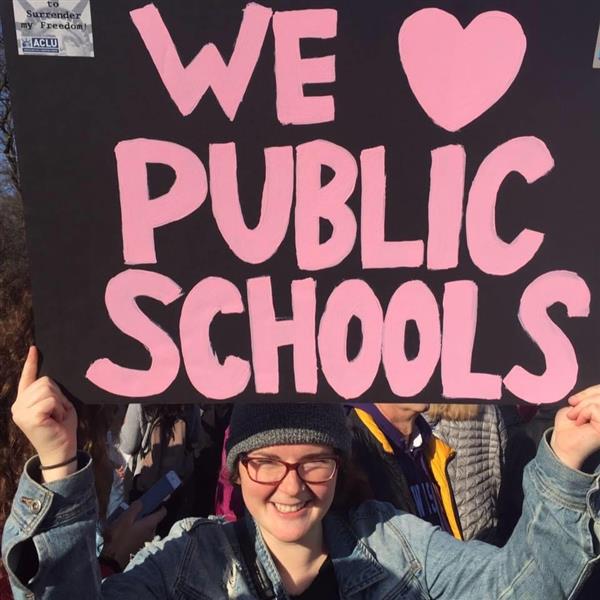 to
Surrender
my Freedom!
ACLU
WE ♥
PUBLIC
SCHOOLS